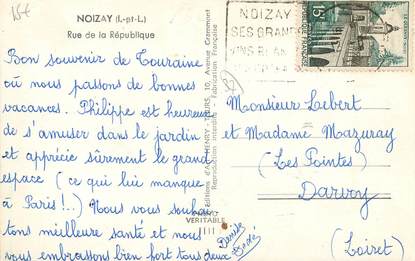 15f
NOIZAY (I.-et-L.)
Rue de la République
Bon souvenir de Touraine
où nous passons de bonnes
vacances. Philippe est heureux
de s'amuser dans le jardin
et apprécie sûrement le grand
espace (ce qui lui manque
à Paris !..) Nous vous souhai
tons meilleure santé et nous
vous embrassons bien fort tous deux
Denise
Dédé
VERITABLE
10, Avenue Grammont
Fabrication Française
NOIZAY
SES GRANDS
VINS BLANCS
15F
Monsieur Laebert
et Madame Mazuray
(Les Pointes)
Darvoy
(Loiret)